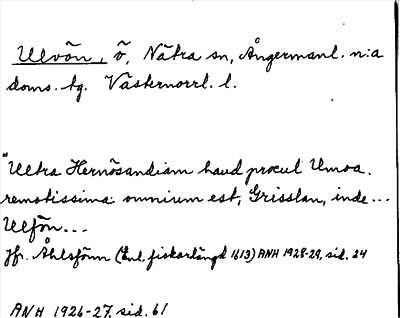 Ulvön, ö, Nätra sn, Ångermanl. n:a
doms. tg. Västernorrl. l.
"Ultra Hernösandiam haud procul Umoa.
remotissima omnium est, Grisslan, inde...
Ulfön...
Jfr. Åhlsförm (Enl. fiskarlängd 1613) ANH 1928-29, sid. 24
ANH 1926-27, sid. 61